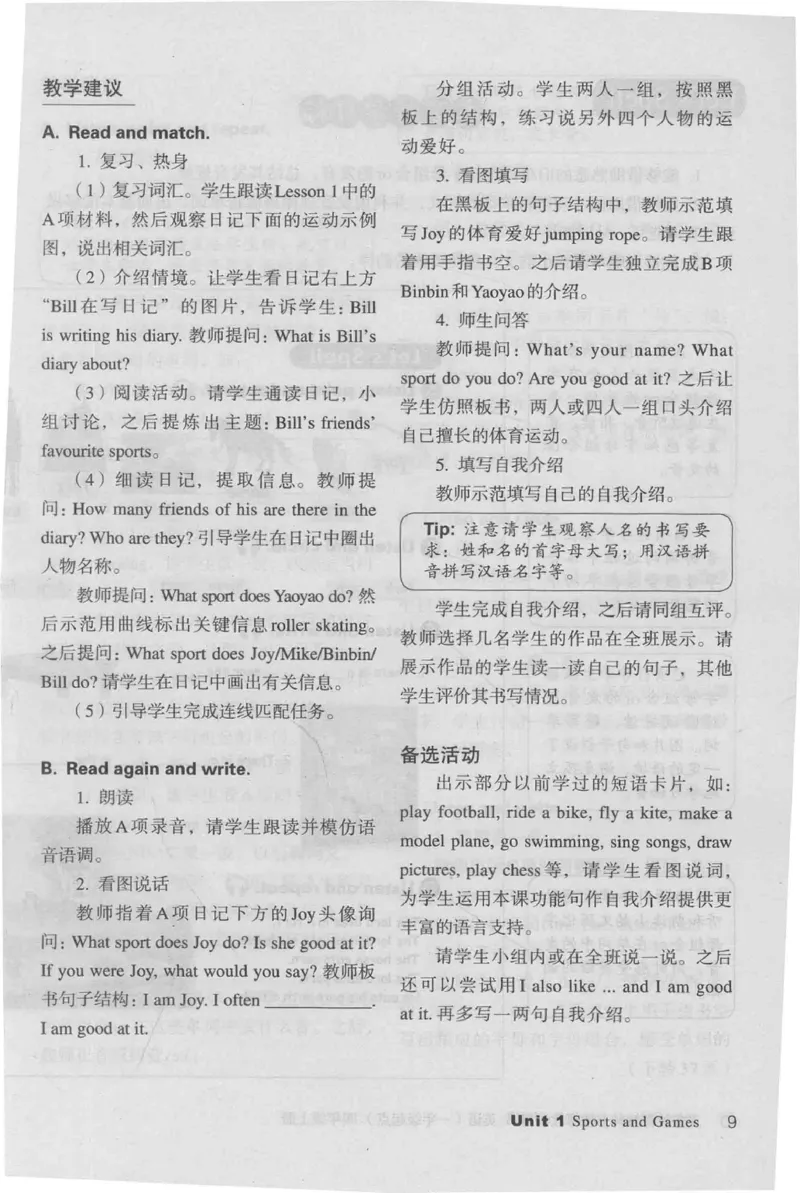 教学建议
A. Read and match.
1. 复习、热身
（1）复习词汇。学生跟读Lesson 1中的
A项材料，然后观察日记下面的运动示例
图，说出相关词汇。
（2）介绍情境。让学生看日记右上方
“Bill在写日记”的图片，告诉学生：Bill
is writing his diary. 教师提问：What is Bill's
diary about?
（3）阅读活动。请学生通读日记，小
组讨论，之后提炼出主题：Bill's friends'
favourite sports。
（4）细读日记，提取信息。教师提
问：How many friends of his are there in the
diary? Who are they? 引导学生在日记中圈出
人物名称。
教师提问：What sport does Yaoyao do? 然
后示范用曲线标出关键信息roller skating。
之后提问：What sport does Joy/Mike/Binbin/
Bill do? 请学生在日记中画出有关信息。
（5）引导学生完成连线匹配任务。
B. Read again and write.
1. 朗读
播放A项录音，请学生跟读并模仿语
音语调。
2. 看图说话
教师指着A项日记下方的Joy头像询
问：What sport does Joy do? Is she good at it?
If you were Joy, what would you say? 教师板
书句子结构：I am Joy. I often ____________.
I am good at it.
分组活动。学生两人一组，按照黑
板上的结构，练习说另外四个人物的运
动爱好。
3. 看图填写
在黑板上的句子结构中，教师示范填
写Joy的体育爱好jumping rope。请学生跟
着用手指书空。之后请学生独立完成B项
Binbin和Yaoyao的介绍。
4. 师生问答
教师提问：What's your name? What
sport do you do? Are you good at it? 之后让
学生仿照板书，两人或四人一组口头介绍
自己擅长的体育运动。
5. 填写自我介绍
教师示范填写自己的自我介绍。
Tip: 注意请学生观察人名的书写要
求：姓和名的首字母大写；用汉语拼
音拼写汉语名字等。
学生完成自我介绍，之后请同组互评。
教师选择几名学生的作品在全班展示。请
展示作品的学生读一读自己的句子，其他
学生评价其书写情况。
备选活动
出示部分以前学过的短语卡片，如：
play football, ride a bike, fly a kite, make a
model plane, go swimming, sing songs, draw
pictures, play chess等，请学生看图说词，
为学生运用本课功能句作自我介绍提供更
丰富的语言支持。
请学生小组内或在全班说一说。之后
还可以尝试用I also like ... and I am good
at it. 再多写一两句自我介绍。
Unit 1 Sports and Games 9